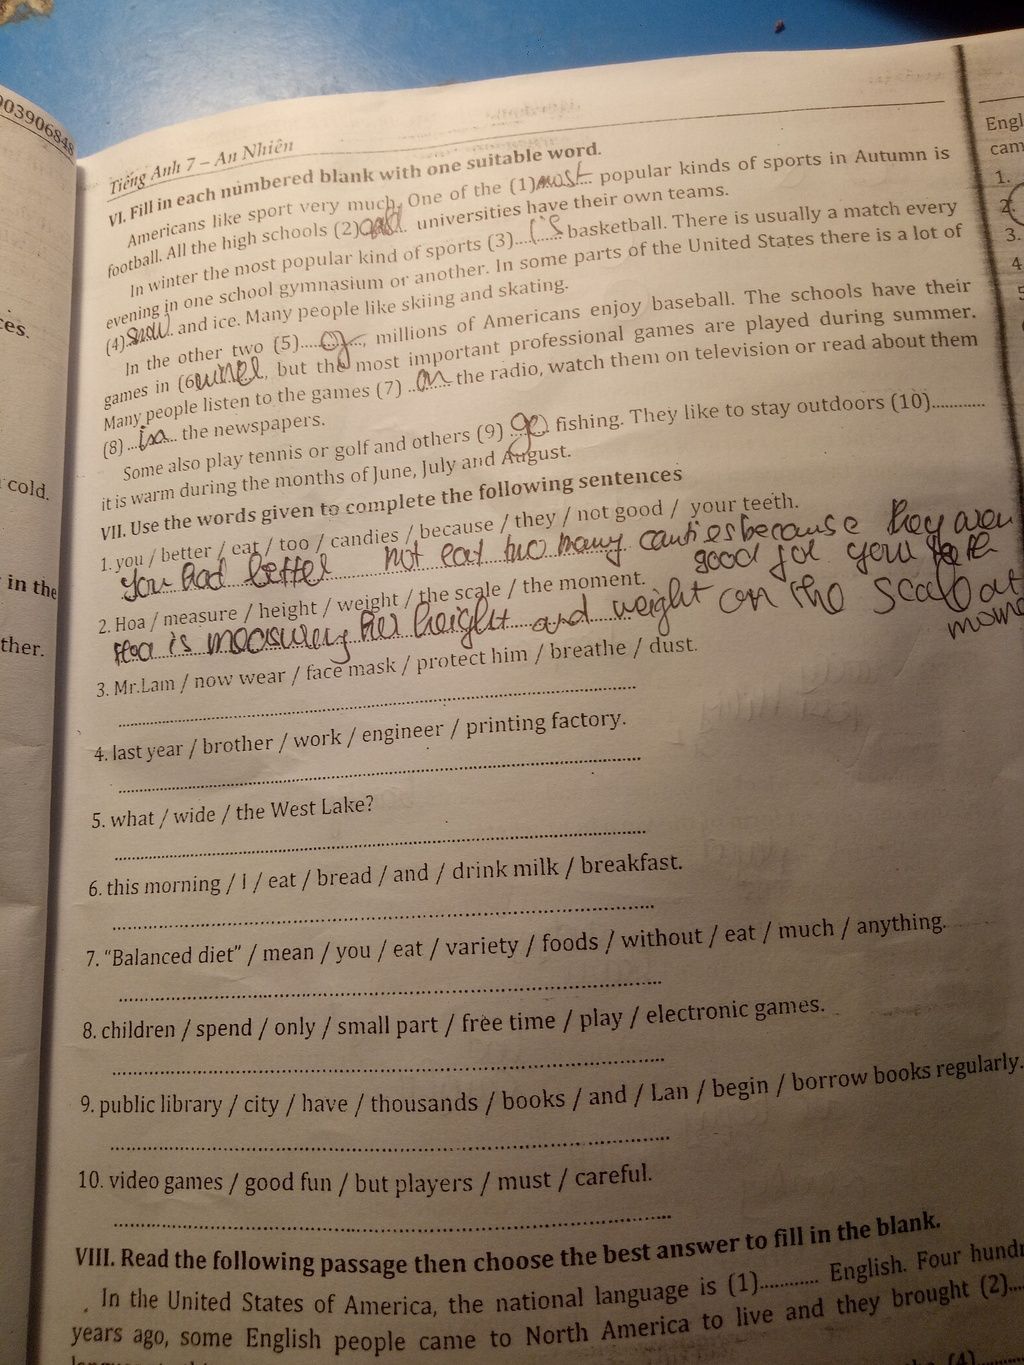 003906848
Tiếng Anh 7 – An Nhiên
VI. Fill in each numbered blank with one suitable word.
Americans like sport very much. One of the (1)most popular kinds of sports in Autumn is
football. All the high schools (2)and universities have their own teams.
In winter the most popular kind of sports (3)....is basketball. There is usually a match every
evening in one school gymnasium or another. In some parts of the United States there is a lot of
(4) and ice. Many people like skiing and skating.
In the other two (5).....of..., millions of Americans enjoy baseball. The schools have their
games in (6, but the most important professional games are played during summer.
Many people listen to the games (7) ..on... the radio, watch them on television or read about them
(8)...in... the newspapers.
Some also play tennis or golf and others (9) go fishing. They like to stay outdoors (10)............
it is warm during the months of June, July and August.
VII. Use the words given to complete the following sentences
1. you / better / eat / too / candies / because / they / not good / your teeth.
You had better not eat too many because they
good for
2. Hoa / measure / height / weight / the scale / the moment.
Hoa is measuring her height and weight on the at
3. Mr.Lam / now wear / face mask / protect him / breathe / dust.
4. last year / brother / work / engineer / printing factory.
5. what / wide / the West Lake?
6. this morning / I / eat / bread / and / drink milk / breakfast.
7. “Balanced diet” / mean / you / eat / variety / foods / without / eat / much / anything.
8. children / spend / only / small part / free time / play / electronic games.
9. public library / city / have / thousands / books / and / Lan / begin / borrow books regularly.
10. video games / good fun / but players / must / careful.
VIII. Read the following passage then choose the best answer to fill in the blank.
In the United States of America, the national language is (1)............ English. Four hundr
years ago, some English people came to North America to live and they brought (2)....
(4)
ces.
cold.
in the
ther.
Engl
cam
1.
2.
3.
4
5